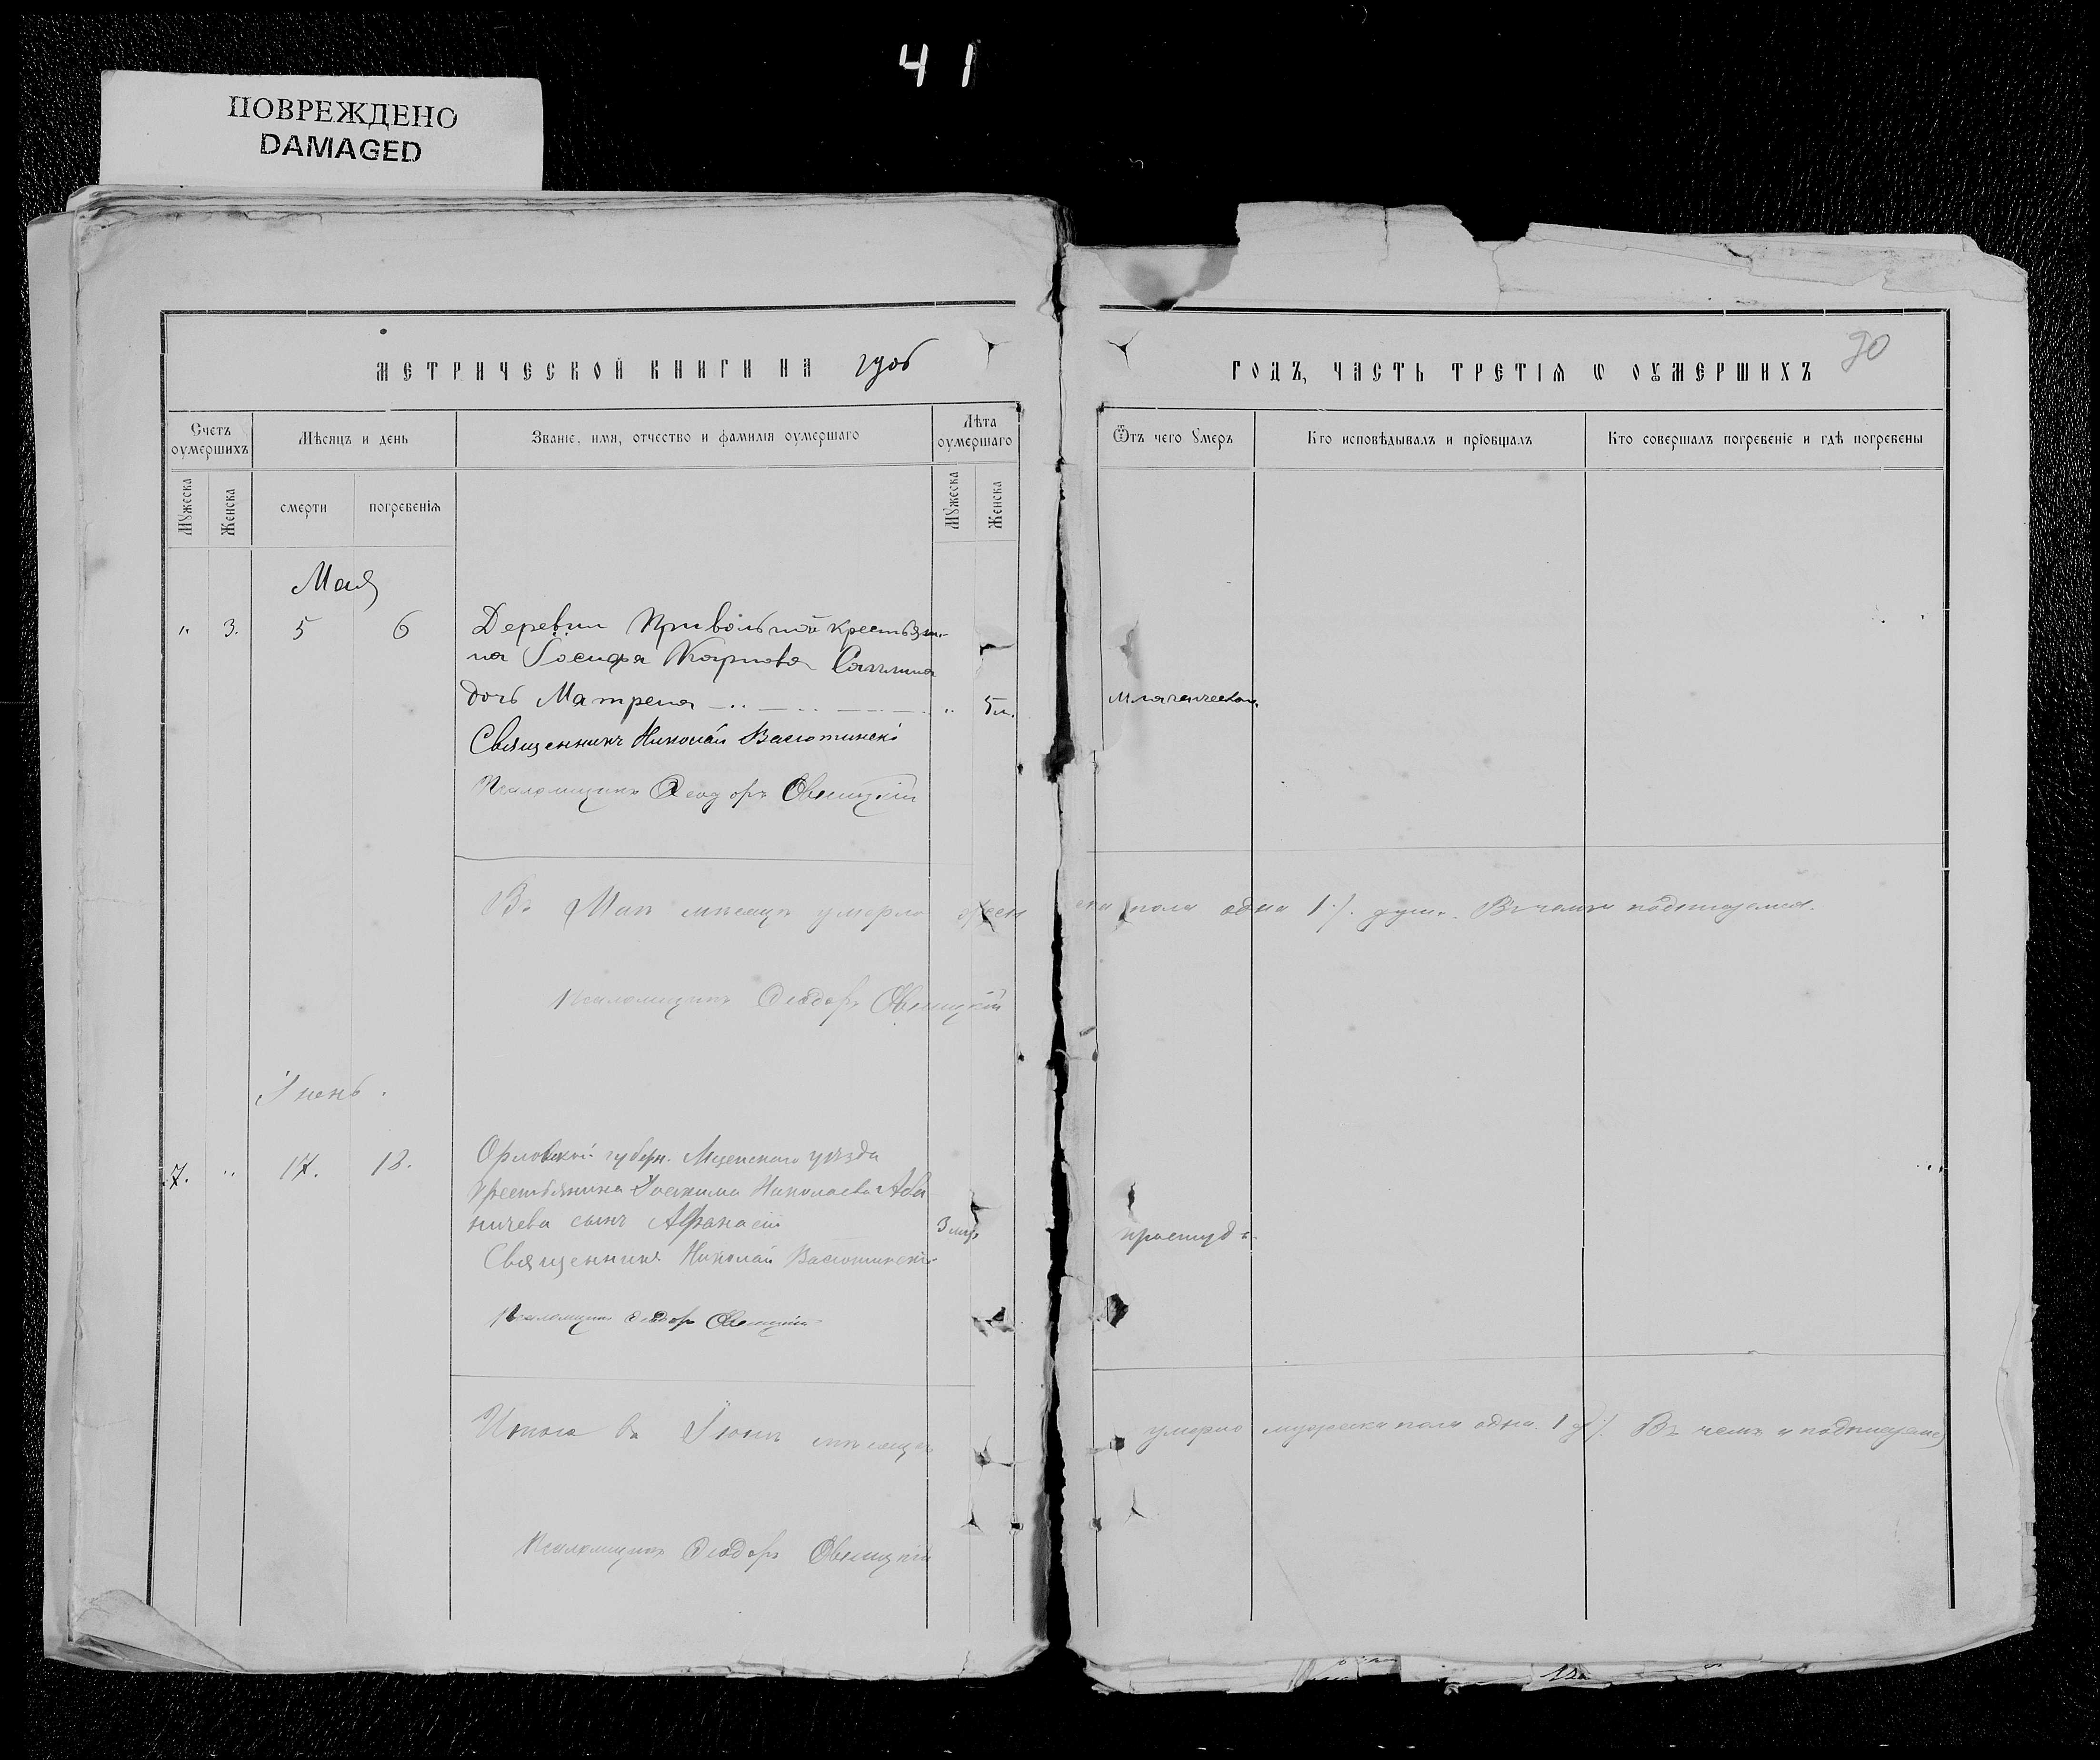 41
ПОВРЕЖДЕНО
DAMAGED
МЕТРИЧЕСКОЙ КНИГИ НА
ГОДЪ, ЧАСТЬ ТРЕТІѦ Ѡ ОУМЕРШИХЪ
90
Счетъ оумершихъ
Мѣсяцъ и день
Званіе, имя, отчество и фамилія оумершаго
Лѣта оумершаго
Ѿтъ чего Умеръ
Кто исповѣдывалъ и пріобщалъ
Кто совершалъ погребеніе и гдѣ погребены
Мужеска
Женска
смерти
погребенія
Мужеска
Женска
Мая
" 3. 5 6 Деревни Привольной крестьяни-
на Іосифа Карпова
дочь Матрена " 5 м. младенческой
Священникъ Николай Васютинскі
Псаломщикъ Ѳеодоръ
Въ Маѣ мѣсяцѣ умерло женска пола одна 1. душа. Въ чемъ и подписуемся.
Псаломщикъ Ѳеодоръ
Іюнь.
7. " 17. 18. Орловской губерн. Мценскаго уѣзда
Крестьянина Іоакима Николаева
сынъ Афанасій 3 мѣс. простуды
Священникъ Николай Васютинскі
Псаломщикъ Ѳеодоръ
Итого въ Іюнѣ мѣсяцѣ умерло мужеска пола одна 1 Въ чемъ и подписуемся
Псаломщикъ Ѳеодоръ